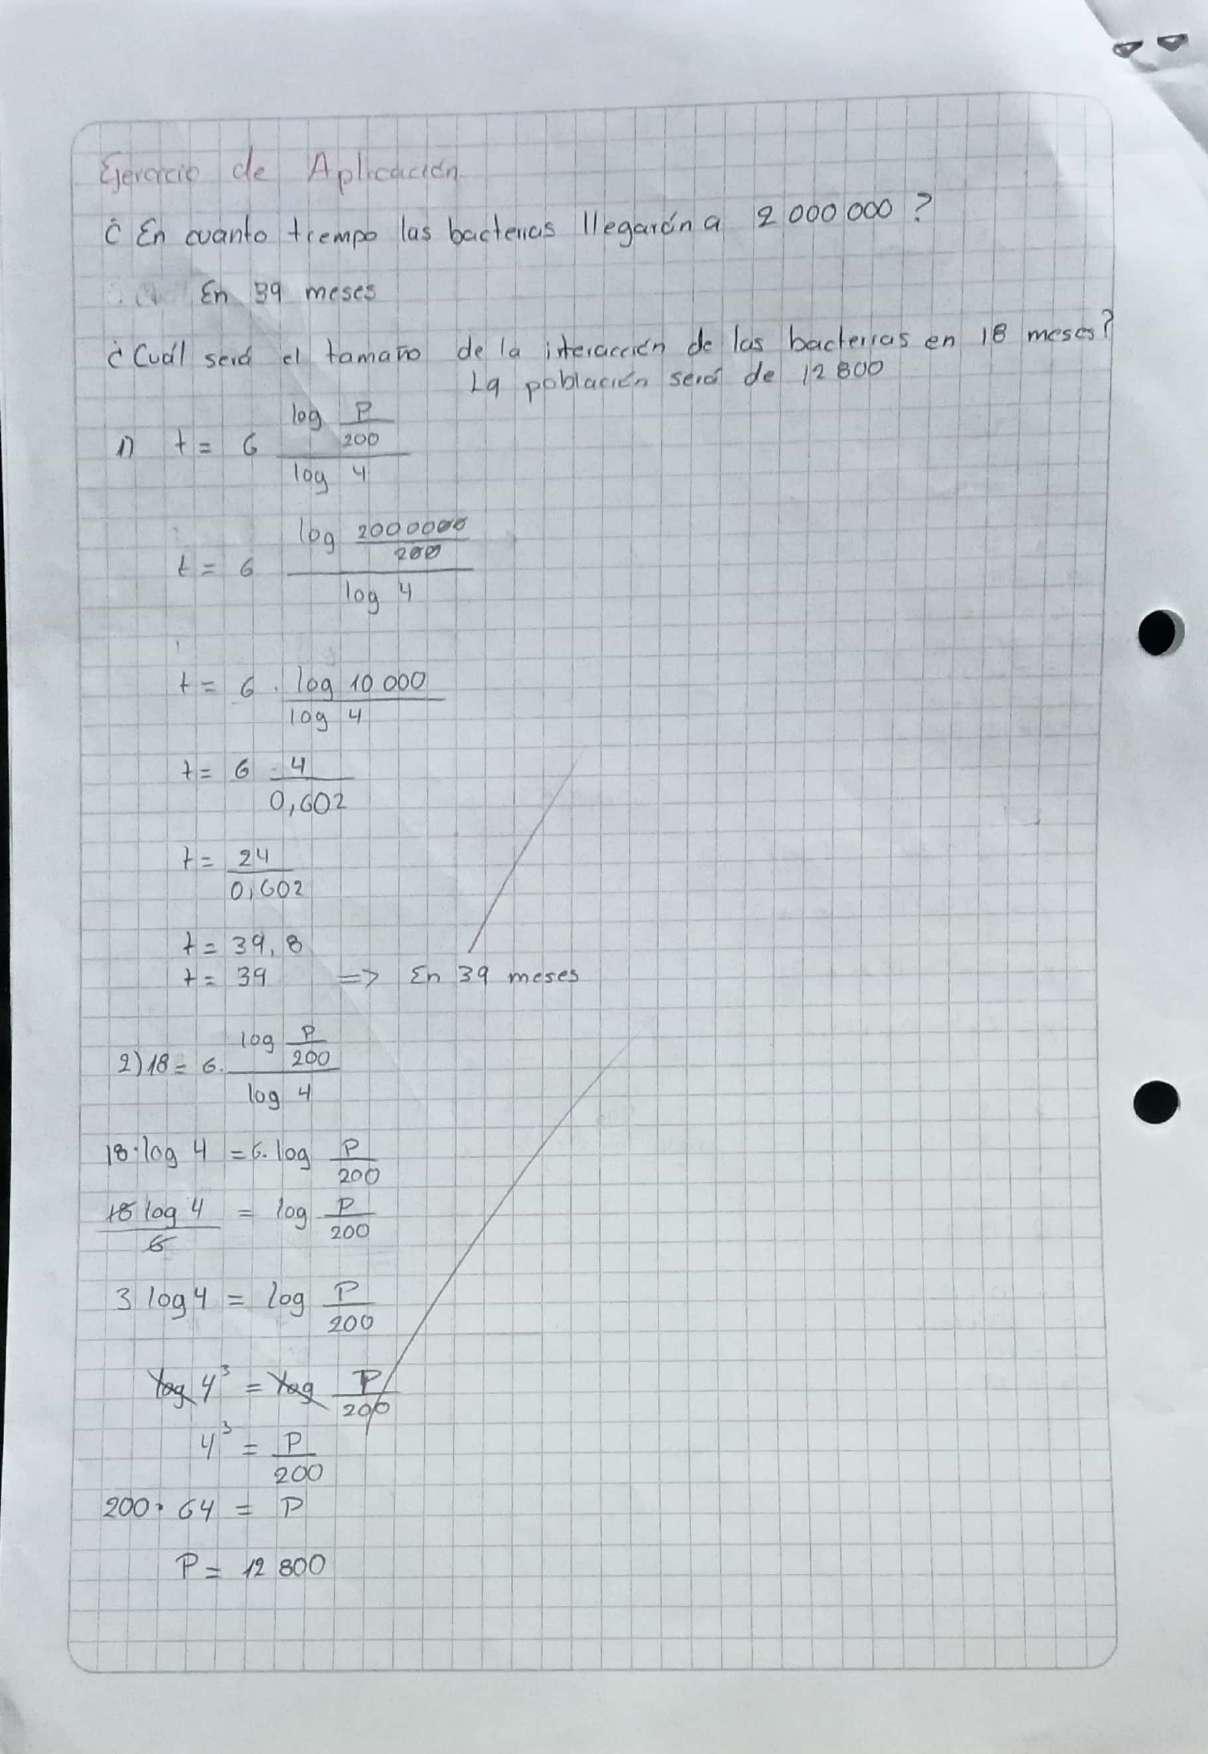 Ejercicio de Aplicación
¿ En cuanto tiempo las bacterias llegarón a 2 000 000 ?
En 39 meses
¿ Cuál será el tamaño de la interacción de las bacterias en 18 meses?
La población será de 12 800
1) t = 6 log P/200 / log 4
t = 6 log 2000000/200 / log 4
t = 6 . log 10 000 / log 4
t = 6 . 4 / 0,602
t = 24 / 0,602
t = 39,8
t = 39 => En 39 meses
2) 18 = 6. log P/200 / log 4
18·log 4 = 6. log P/200
18 log 4 / 6 = log P/200
3 log 4 = log P/200
log 4³ = log P/200
4³ = P/200
200· 64 = P
P = 12 800